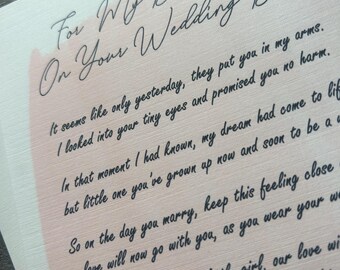 For My
On Your Wedding
It seems like only yesterday, they put you in my arms.
I looked into your tiny eyes and promised you no harm.
In that moment I had known, my dream had come to
but little one you've grown up now and soon to be a
So on the day you marry, keep this feeling close
love will now go with you, as you wear your
girl, our love